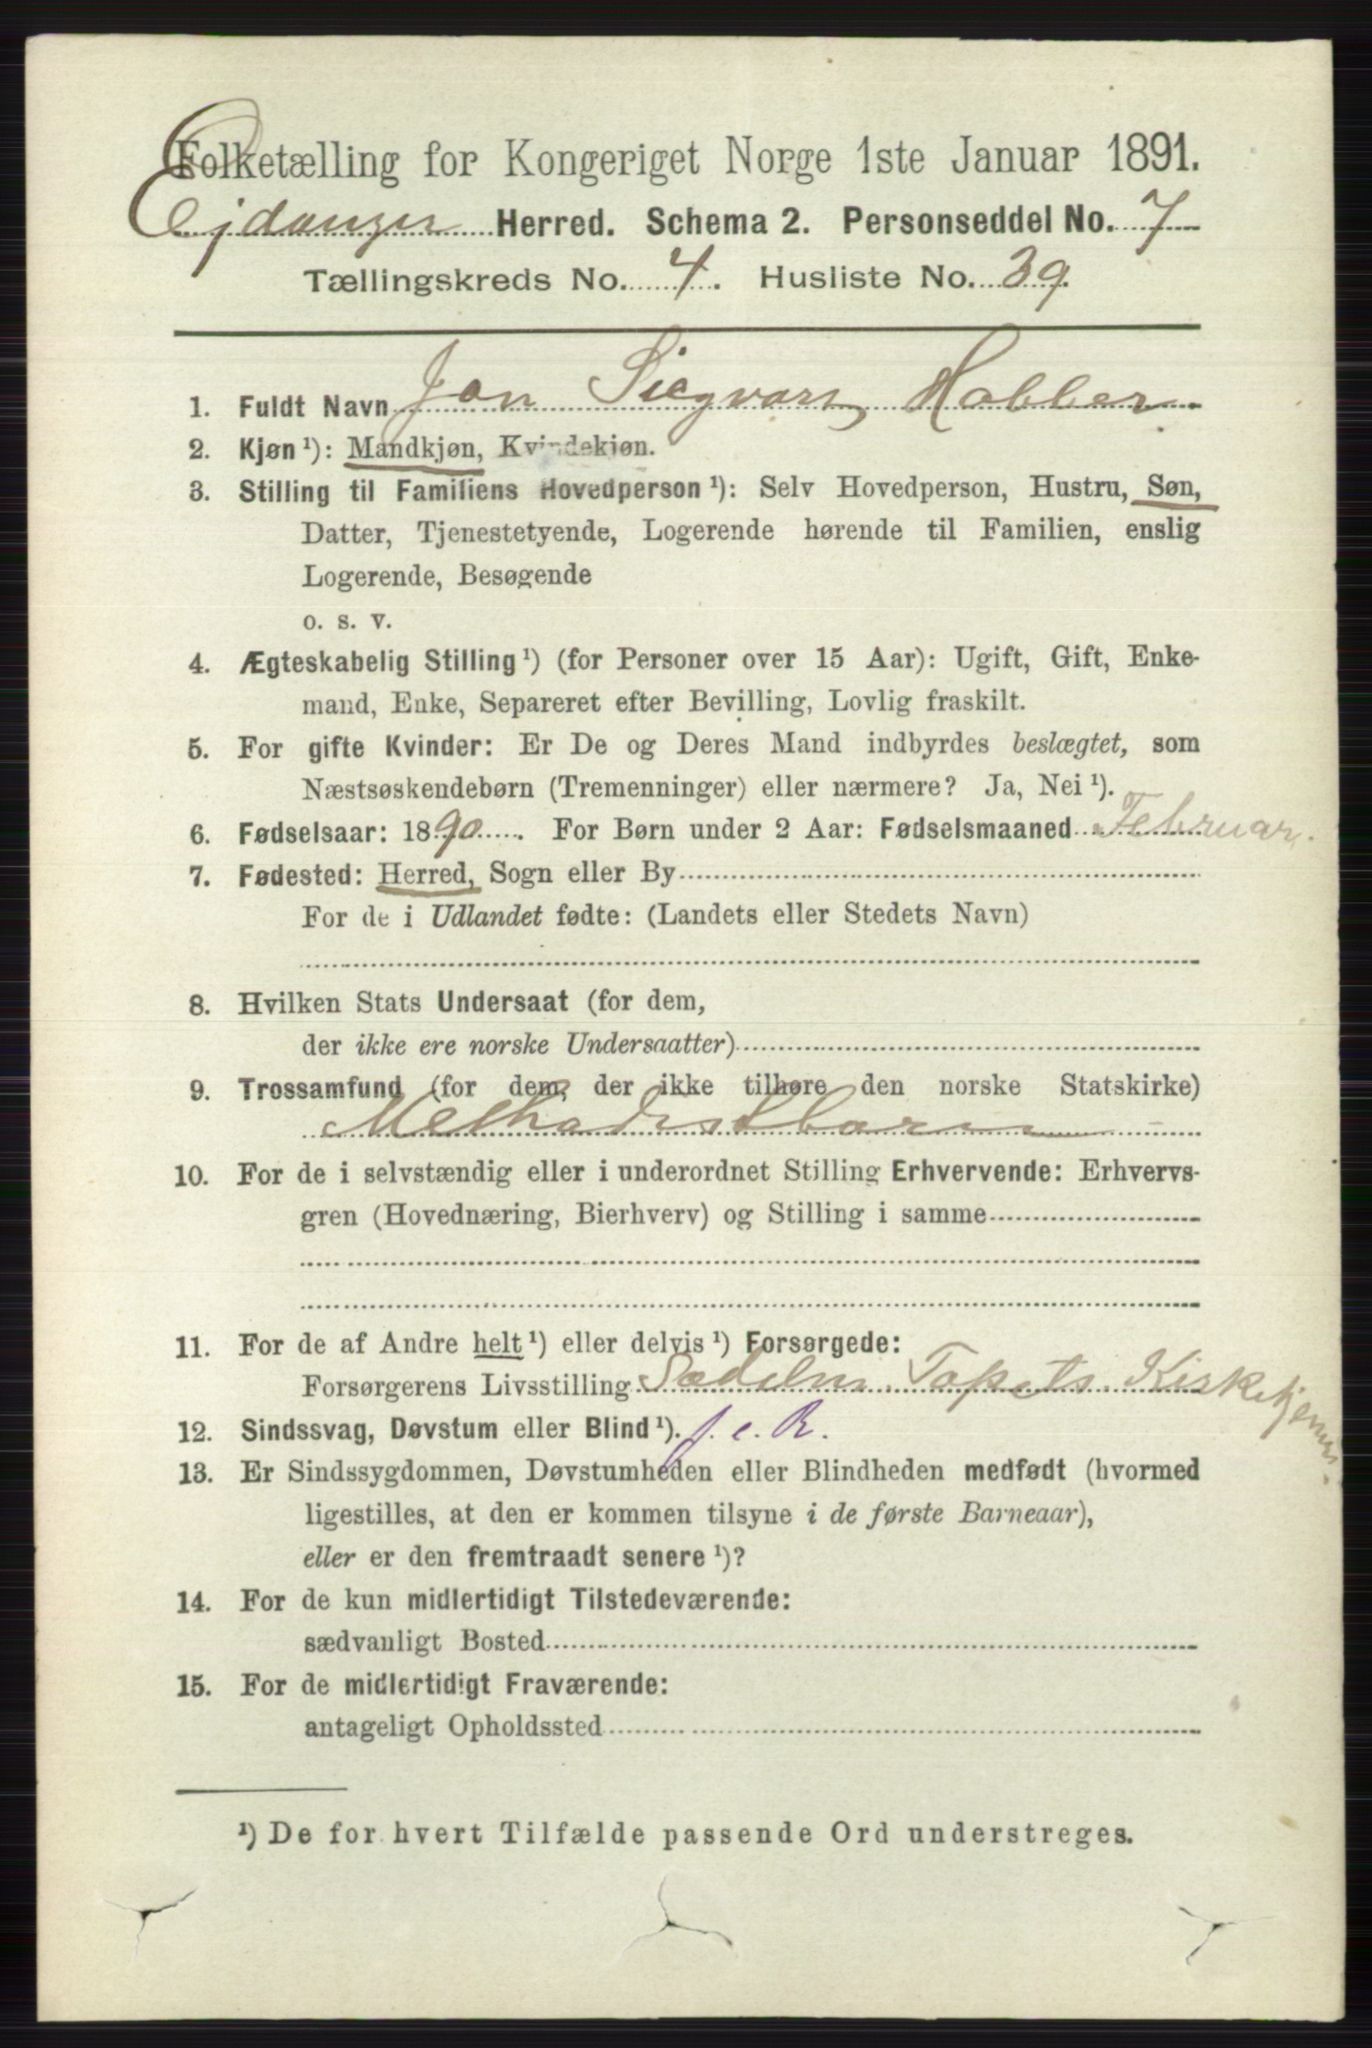 Folketælling for Kongeriget Norge 1ste Januar 1891.
Ejdanger Herred. Schema 2. Personseddel No. 7
Tællingskreds No. 4. Husliste No. 39.
1. Fuldt Navn Jon Sigvart Habber
2. Kjøn ¹): Mandkjøn, Kvindekjøn.
3. Stilling til Familiens Hovedperson ¹): Selv Hovedperson, Hustru, Søn,
Datter, Tjenestetyende, Logerende hørende til Familien, enslig
Logerende, Besøgende
o. s. v.
4. Ægteskabelig Stilling ¹) (for Personer over 15 Aar): Ugift, Gift, Enke-
mand, Enke, Separeret efter Bevilling, Lovlig fraskilt.
5. For gifte Kvinder: Er De og Deres Mand indbyrdes beslægtet, som
Næstsøskendebørn (Tremenninger) eller nærmere? Ja, Nei ¹).
6. Fødselsaar: 1890. For Børn under 2 Aar: Fødselsmaaned Februar.
7. Fødested: Herred, Sogn eller By
For de i Udlandet fødte: (Landets eller Stedets Navn)
8. Hvilken Stats Undersaat (for dem,
der ikke ere norske Undersaatter)
9. Trossamfund (for dem, der ikke tilhøre den norske Statskirke)
Methodistbarn
10. For de i selvstændig eller i underordnet Stilling Erhvervende: Erhvervs-
gren (Hovednæring, Bierhverv) og Stilling i samme
11. For de af Andre helt ¹) eller delvis ¹) Forsørgede:
Forsørgerens Livsstilling Tapets. Kirketjener.
12. Sindssvag, Døvstum eller Blind ¹). f. e. R.
13. Er Sindssygdommen, Døvstumheden eller Blindheden medfødt (hvormed
ligestilles, at den er kommen tilsyne i de første Barneaar),
eller er den fremtraadt senere ¹)?
14. For de kun midlertidigt Tilstedeværende:
sædvanligt Bosted
15. For de midlertidigt Fraværende:
antageligt Opholdssted
¹) De for hvert Tilfælde passende Ord understreges.